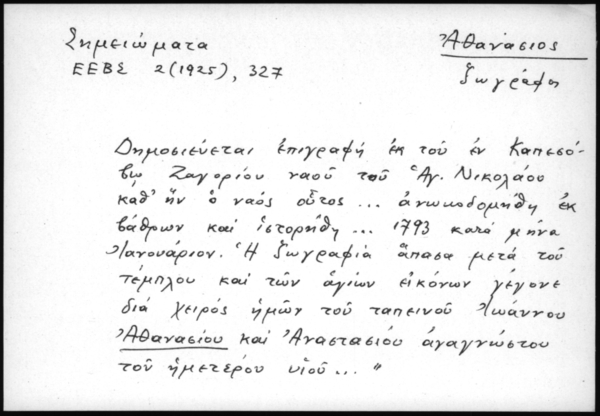 Σημειώματα
ΕΕΒΣ 2(1925), 327
Ἀθανάσιος
ζωγράφος
Δημοσιεύεται ἐπιγραφή ἐκ τοῦ ἐν Καπεσό-
βῳ Ζαγορίου ναοῦ τοῦ Ἁγ. Νικολάου
καθ' ἥν ὁ ναός οὗτος ... ἀνωκοδομήθη ἐκ
βάθρων καί ἱστορήθη ... 1793 κατά μήνα
Ἰανουάριον. Ἡ ζωγραφία ἅπασα μετά τοῦ
τέμπλου καί τῶν ἁγίων εἰκόνων γέγονε
διά χειρός ἡμῶν τοῦ ταπεινοῦ Ἰωάννου
Ἀθανασίου καί Ἀναστασίου ἀναγνώστου
τοῦ ἡμετέρου υἱοῦ ... "